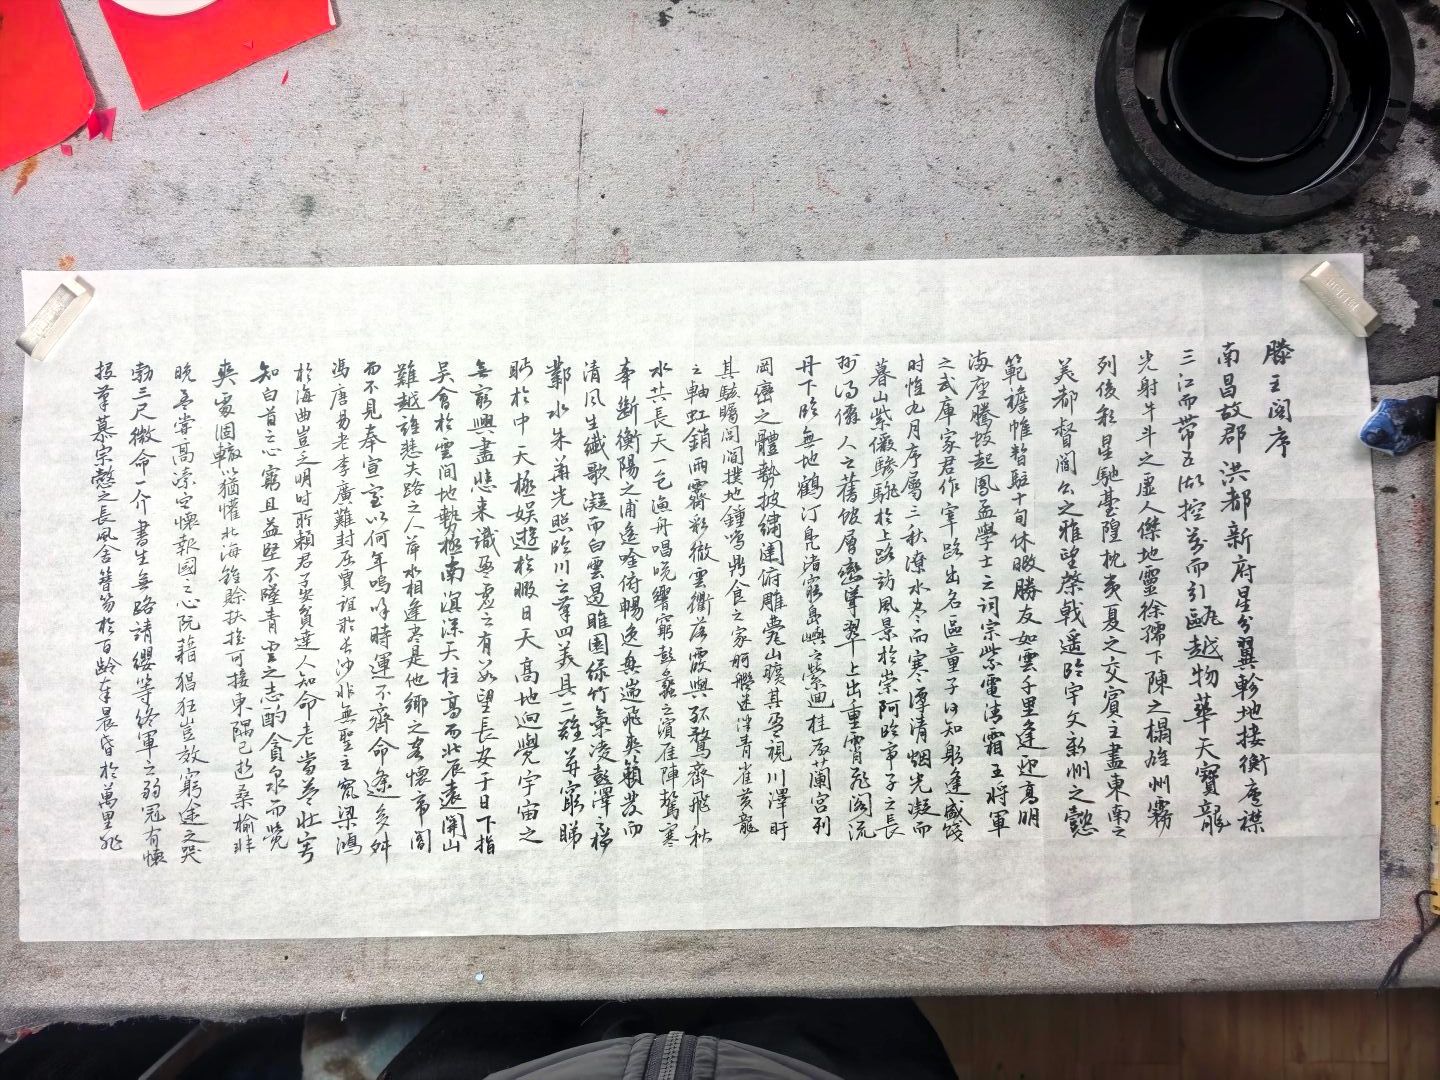 滕王閣序
南昌故郡洪都新府星分翼軫地接衡廬襟
三江而帶五湖控蠻而引甌越物華天寶龍
光射牛斗之虛人傑地靈徐孺下陳之榻雄州霧
列俊彩星馳臺隍枕夷夏之交賓主盡東南之
美都督閻公之雅望棨戟遥臨宇文新州之懿
範襜帷暫駐十旬休暇勝友如雲千里逢迎高朋
滿座騰蛟起鳳孟學士之詞宗紫電清霜王將軍
之武庫家君作宰路出名區童子何知躬逢盛餞
時惟九月序屬三秋潦水尽而寒潭清烟光凝而
暮山紫儼驂騑於上路訪風景於崇阿臨帝子之長
洲得僊人之舊館層巒聳翠上出重霄飛阁流
丹下臨無地鶴汀鳧渚窮島嶼之縈迴桂殿蘭宮列
岡巒之體勢披繡闥俯雕甍山曠其盈視川澤盱
其駭矚閭閻撲地鐘鳴鼎食之家舸艦迷津青雀黄龍
之軸虹銷雨霽彩徹雲衢落霞與孤鶩齊飛秋
水共長天一色漁舟唱晚響窮彭蠡之濱雁陣驚寒
聲斷衡陽之浦遥吟俯暢逸興遄飛爽籟發而
清風生纖歌凝而白雲遏睢園绿竹氣凌彭澤之樽
鄴水朱華光照臨川之筆四美具二難并窮睇
眄於中天極娱遊於暇日天高地迥覺宇宙之
無窮興盡悲来識盈虚之有数望長安于日下指
吴會於雲間地勢極南溟深天柱高而北辰遠關山
難越誰悲失路之人萍水相逢尽是他鄉之客懷帝閽
而不見奉宣室以何年嗚呼時運不齊命途多舛
馮唐易老李廣難封屈賈誼於長沙非無聖主竄梁鴻
於海曲豈乏明时所賴君子安貧達人知命老當益壮寧
知白首之心窮且益堅不墜青雲之志酌貪泉而覺
爽處涸轍以猶懽北海雖賒扶摇可接東隅已逝桑榆非
晚孟嘗高潔空懷報國之心阮籍猖狂豈效窮途之哭
勃三尺微命一介書生無路請纓等終軍之弱冠有懷
投筆慕宗愨之長風舍簪笏於百龄奉晨昏於萬里非